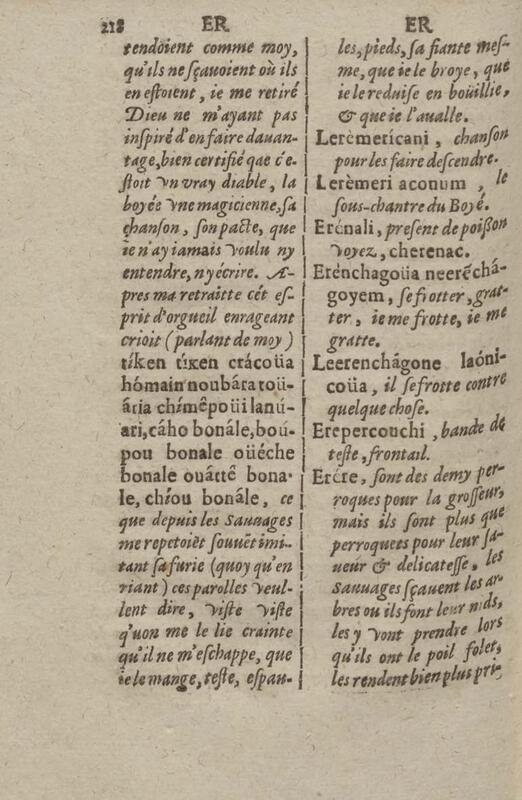 218 ER ER
rendoient comme moy,
qu'ils ne sçavoient où ils
en estoient, ie me retiré
Dieu ne m'ayant pas
inspiré d'en faire dauan-
tage, bien certifié que c'e-
stoit vn vray diable, la
boyée vne magicienne, sa
chanson, son pacte, que
ie n'ay iamais voulu ny
entendre, ny écrire. A-
pres ma retraitte cét es-
prit d'orgueil enrageant
crioit (parlant de moy)
tíken tíxen crácoüa
hómain noubára toü-
ária chímêpoüi lanú-
ari, cáho bonále, boú-
pou bonale oüéche
bonale ouáttê bona-
le, chíou bonále, ce
que depuis les Sauuages
me repetoiẽt souuẽt imi-
tant sa furie (quoy qu'en
riant) ces parolles veul-
lent dire, viste viste
q'uon me le lie crainte
qu'il ne m'eschappe, que
ie le mange, teste, espau-
les, pieds, sa fiante mes-
me, que ie le broye, que
ie le reduise en boüillie,
& que ie l'aualle.
Lerèmericani, chanson
pour les faire descendre.
Lerèmeri aconum, le
sous-chantre du Boyé.
Erénali, present de poißon
voyez, cherenac.
Erénchagoüa neerẽchá-
goyem, se frotter, grat-
ter, ie me frotte, ie me
gratte.
Leerenchâgone laóni-
coüa, il se frotte contre
quelque chose.
Erepercouchi, bande de
teste, frontail.
Erére, sont des demy per-
roques pour la grosseur,
mais ils sont plus que
perroquets pour leur sa-
ueur & delicatesse, les
Sauuages sçauent les ar-
bres ou ils font leur nids,
les y vont prendre lors
qu'ils ont le poil folet,
les rendent bien plus pri-